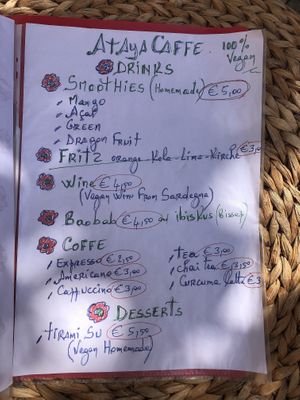 Ataya Caffe
100% Vegan
Drinks
Smoothies (Homemade) € 5,00
Mango
Açaí
Green
Dragon Fruit
Fritz orange - Kola - Lime - Kirche € 3,0
Wine € 4,50
(Vegan Wine From Sardegna)
Baobab € 4,50 or ibiskus (Bissap)
Coffe
Espresso € 2,50
Americano € 3,00
Cappuccino € 3,00
Tea € 3,00
Chai tea € 3,50
Curcuma latte € 3
Desserts
Tirami Su € 5,50
(Vegan Homemade)